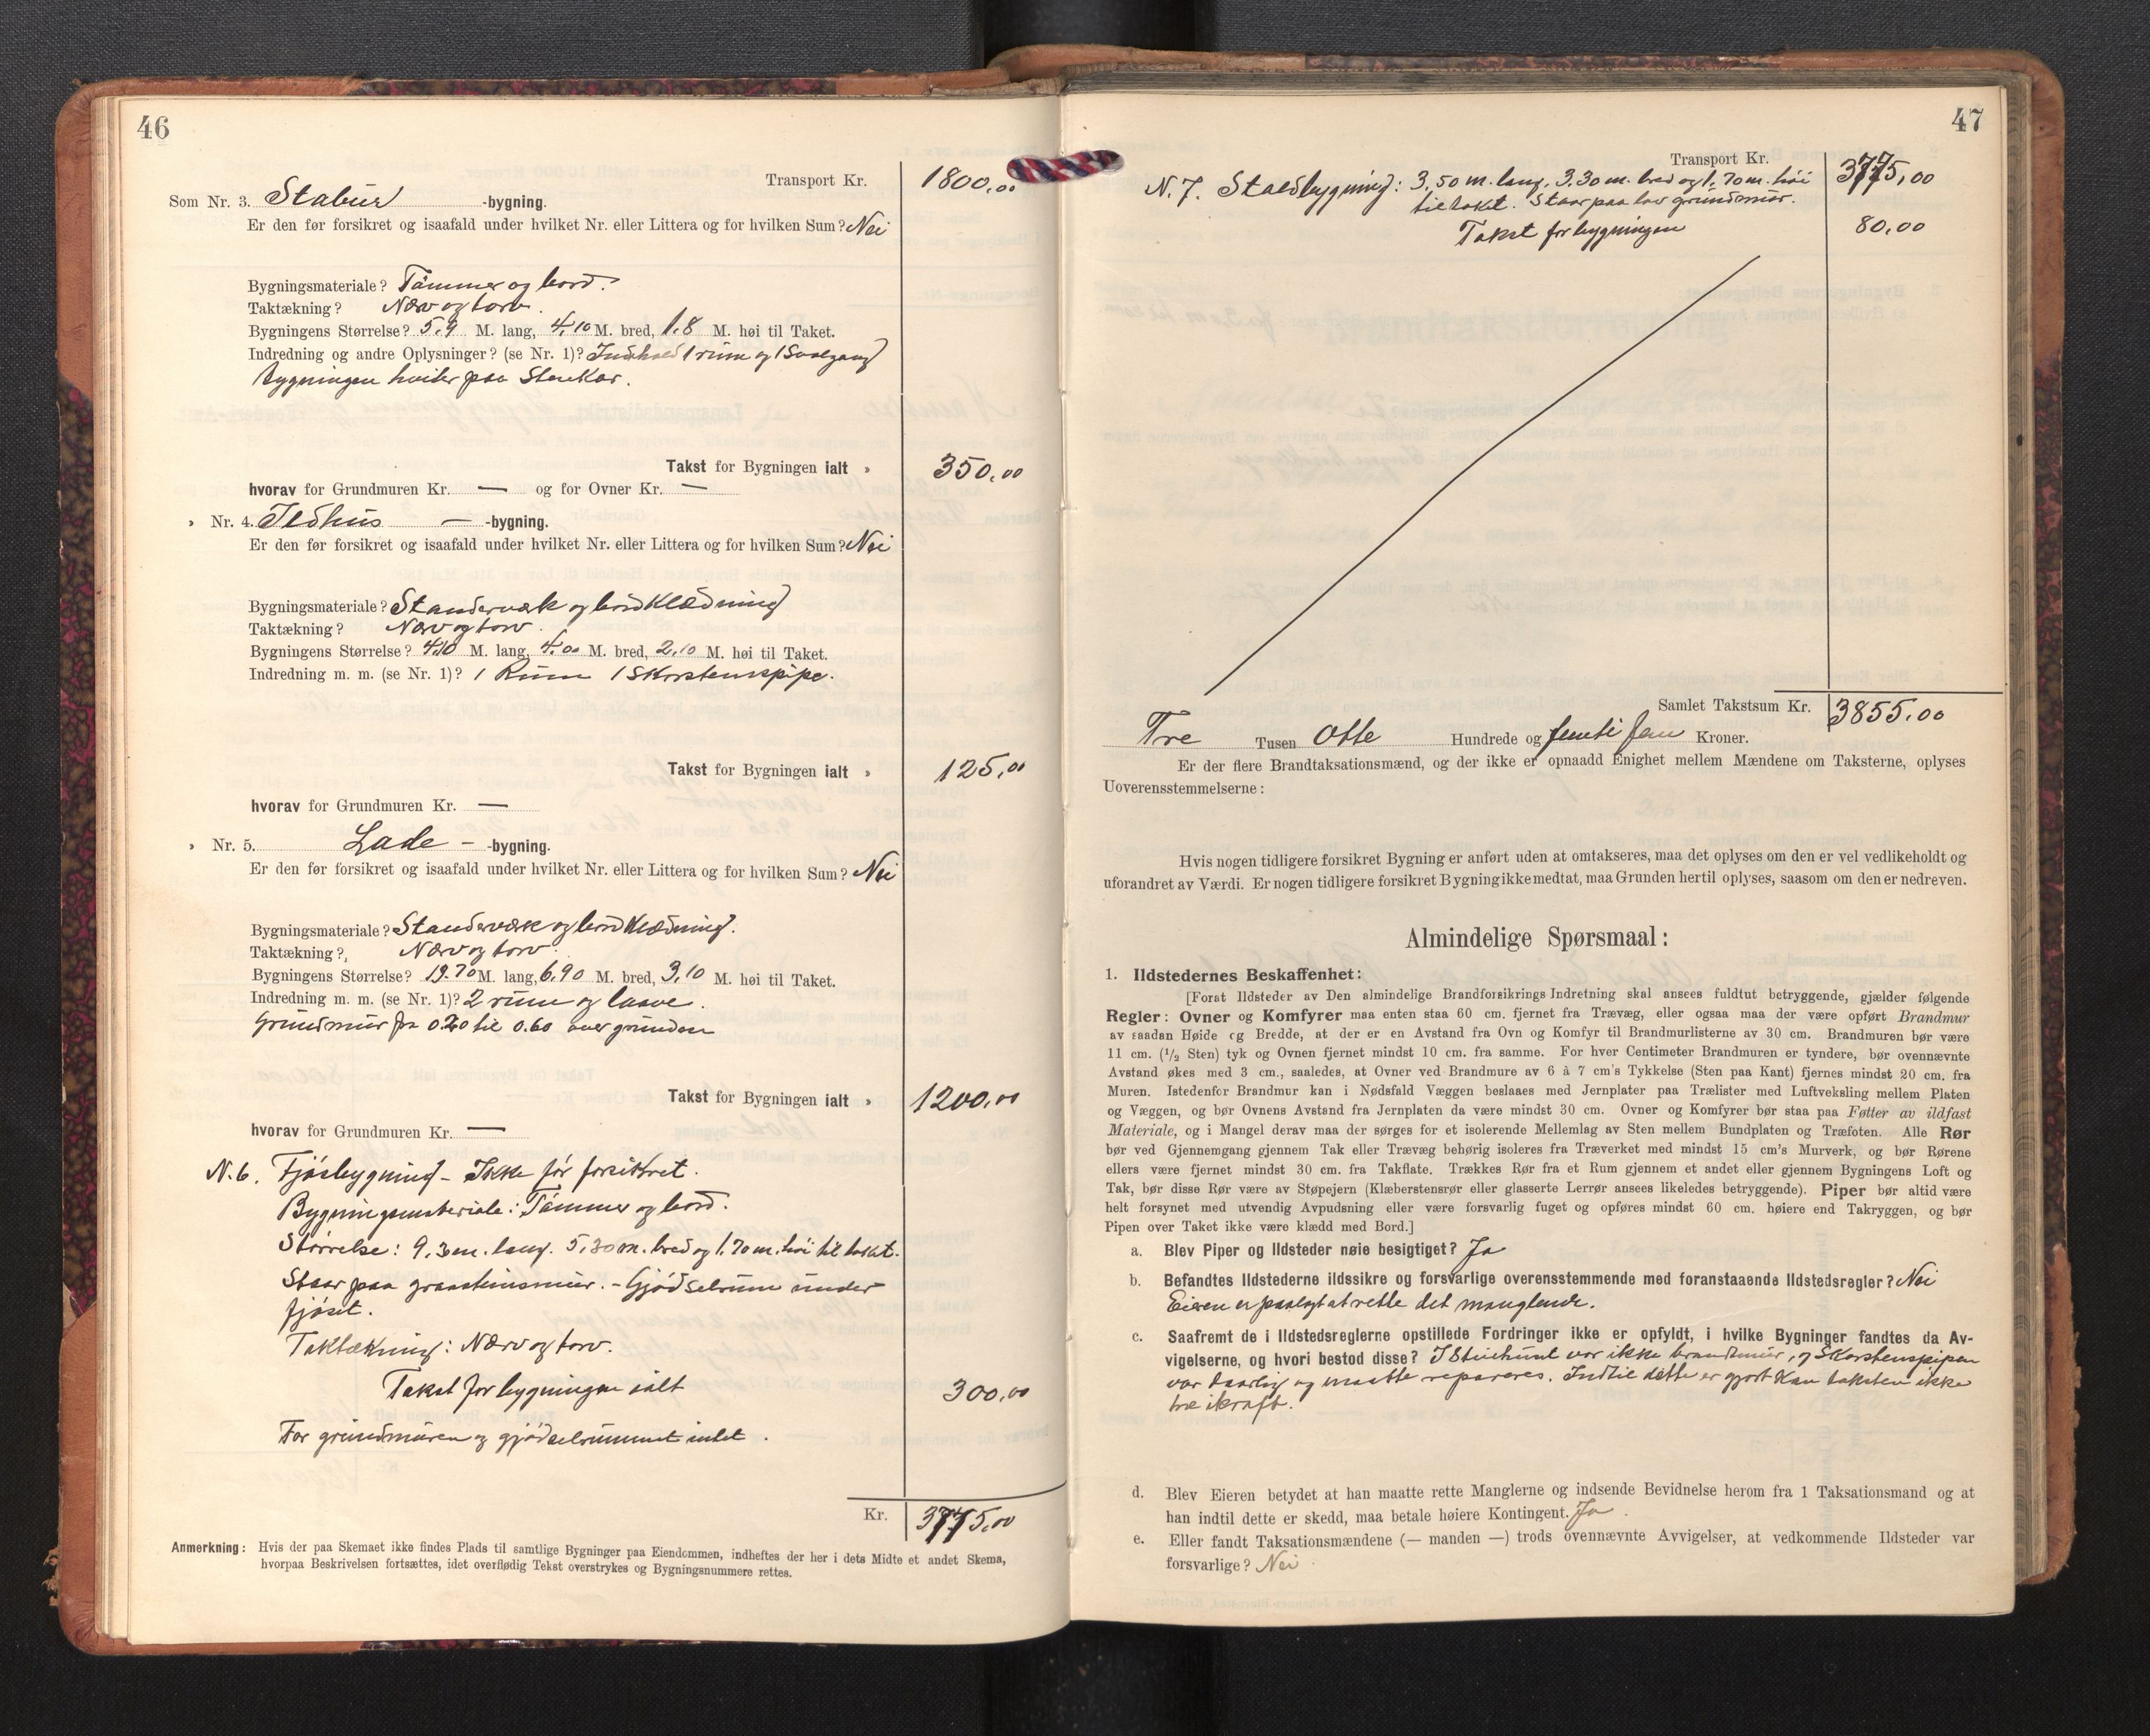 46
Transport Kr. 1800,00
Som Nr. 3. Stabur -bygning.
Er den før forsikret og isaafald under hvilket Nr. eller Littera og for hvilken Sum? Nei
Bygningsmateriale? Tømmer og bord.
Taktækning? Næver og torv.
Bygningens Størrelse? 5.9 M. lang, 4.10 M. bred, 1.8 M. høi til Taket.
Indredning og andre Oplysninger? (se Nr. 1)? Indehold 1 rum og 1 Svalgang
bygningen hviler paa Stenkar.
Takst for Bygningen ialt » 350,00
hvorav for Grundmuren Kr. — og for Ovner Kr. —
» Nr. 4. Ildhus — -bygning.
Er den før forsikret og isaafald under hvilket Nr. eller Littera og for hvilken Sum? Nei
Bygningsmateriale? Standerværk og bordklædning
Taktækning? Næv og torv.
Bygningens Størrelse? 4.10 M. lang, 4.00 M. bred, 2.10 M. høi til Taket.
Indredning m. m. (se Nr. 1)? 1 Rum 1 Skorstenspipe.
Takst for Bygningen ialt » 125,00
hvorav for Grundmuren Kr. —
» Nr. 5. Lade - -bygning.
Er den før forsikret og isaafald under hvilket Nr. eller Littera og for hvilken Sum? Nei
Bygningsmateriale? Standerværk og bordklædning.
Taktækning? Næv og torv.
Bygningens Størrelse? 19.70 M. lang, 6.90 M. bred, 3.10 M. høi til Taket.
Indredning m. m. (se Nr. 1)? 2 rum og laave.
Grundmur fra 0.20 til 0.60 over grunden
Takst for Bygningen ialt » 1200,00
hvorav for Grundmuren Kr. —
N. 6. Fjøsbygning - Ikke før forsikret.
Bygningsmateriale: Tømmer og bord.
Størrelse: 9.30 m. lang. 5.30 m. bred og 1.70 m. høi til taket.
Staar paa graastensmur. - Gjødselrum under
fjøset.
Taktækning: Næv og torv.
Takst for bygningen ialt 300,00
For grundmuren og gjødselrummet intet.
Kr. 3775,00
Anmerkning: Hvis der paa Skemaet ikke findes Plads til samtlige Bygninger paa Eiendommen, indheftes der her i dets Midte et andet Skema,
hvorpaa Beskrivelsen fortsættes, idet overflødig Tekst overstrykes og Bygningsnummere rettes.
47
Transport Kr. 3775,00
N. 7. Staldbygning: 3.50 m. lang, 3.30 m. bred og 1.70 m. høi
til taket. Staar paa lav grundmur.
Takst for bygningen 80,00
Samlet Takstsum Kr. 3855,00
Tre Tusen Otte Hundrede og femti fem Kroner.
Er der flere Brandtaksationsmænd, og der ikke er opnaadd Enighet mellem Mændene om Taksterne, oplyses
Uoverensstemmelserne:
Hvis nogen tidligere forsikret Bygning er anført uden at omtakseres, maa det oplyses om den er vel vedlikeholdt og
uforandret av Værdi. Er nogen tidligere forsikret Bygning ikke medtat, maa Grunden hertil oplyses, saasom om den er nedreven.
Almindelige Spørsmaal:
1. Ildstedernes Beskaffenhet:
[Forat Ildsteder av Den almindelige Brandforsikrings Indretning skal ansees fuldtut betryggende, gjælder følgende
Regler: Ovner og Komfyrer maa enten staa 60 cm. fjernet fra Trævæg, eller ogsaa maa der være opført Brandmur
av saadan Høide og Bredde, at der er en Avstand fra Ovn og Komfyr til Brandmurlisterne av 30 cm. Brandmuren bør være
11 cm. (1/2 Sten) tyk og Ovnen fjernet mindst 10 cm. fra samme. For hver Centimeter Brandmuren er tyndere, bør ovennævnte
Avstand økes med 3 cm., saaledes, at Ovner ved Brandmure av 6 à 7 cm's Tykkelse (Sten paa Kant) fjernes mindst 20 cm. fra
Muren. Istedenfor Brandmur kan i Nødsfald Væggen beslaaes med Jernplater paa Trælister med Luftveksling mellem Platen
og Væggen, og bør Ovnens Avstand fra Jernplaten da være mindst 30 cm. Ovner og Komfyrer bør staa paa Føtter av ildfast
Materiale, og i Mangel derav maa der sørges for et isolerende Mellemlag av Sten mellem Bundplaten og Træfoten. Alle Rør
bør ved Gjennemgang gjennem Tak eller Trævæg behørig isoleres fra Træverket med mindst 15 cm's Murverk, og bør Rørene
ellers være fjernet mindst 30 cm. fra Takflate. Trækkes Rør fra et Rum gjennem et andet eller gjennem Bygningens Loft og
Tak, bør disse Rør være av Støpejern (Klæberstensrør eller glasserte Lerrør ansees likeledes betryggende). Piper bør altid være
helt forsynet med utvendig Avpudsning eller være forsvarlig fuget og opføres mindst 60 cm. høiere end Takryggen, og bør
Pipen over Taket ikke være klædd med Bord.]
a. Blev Piper og Ildsteder nøie besigtiget? Ja
b. Befandtes Ildstederne ildssikre og forsvarlige overensstemmende med foranstaaende Ildstedsregler? Nei
Eieren er paalagt at rette det manglende.
c. Saafremt de i Ildstedsreglerne opstillede Fordringer ikke er opfyldt, i hvilke Bygninger fandtes da Av-
vigelserne, og hvori bestod disse? I Stuehuset var ikke brandmur, og Skorstenspipen
var daarlig og maatte repareres. Indtil dette er gjort kan taksten ikke
træ ikraft.
d. Blev Eieren betydet at han maatte rette Manglerne og indsende Bevidnelse herom fra 1 Taksationsmand og at
han indtil dette er skedd, maa betale høiere Kontingent. Ja.
e. Eller fandt Taksationsmændene (— manden —) trods ovennævnte Avvigelser, at vedkommende Ildsteder var
forsvarlige? Nei